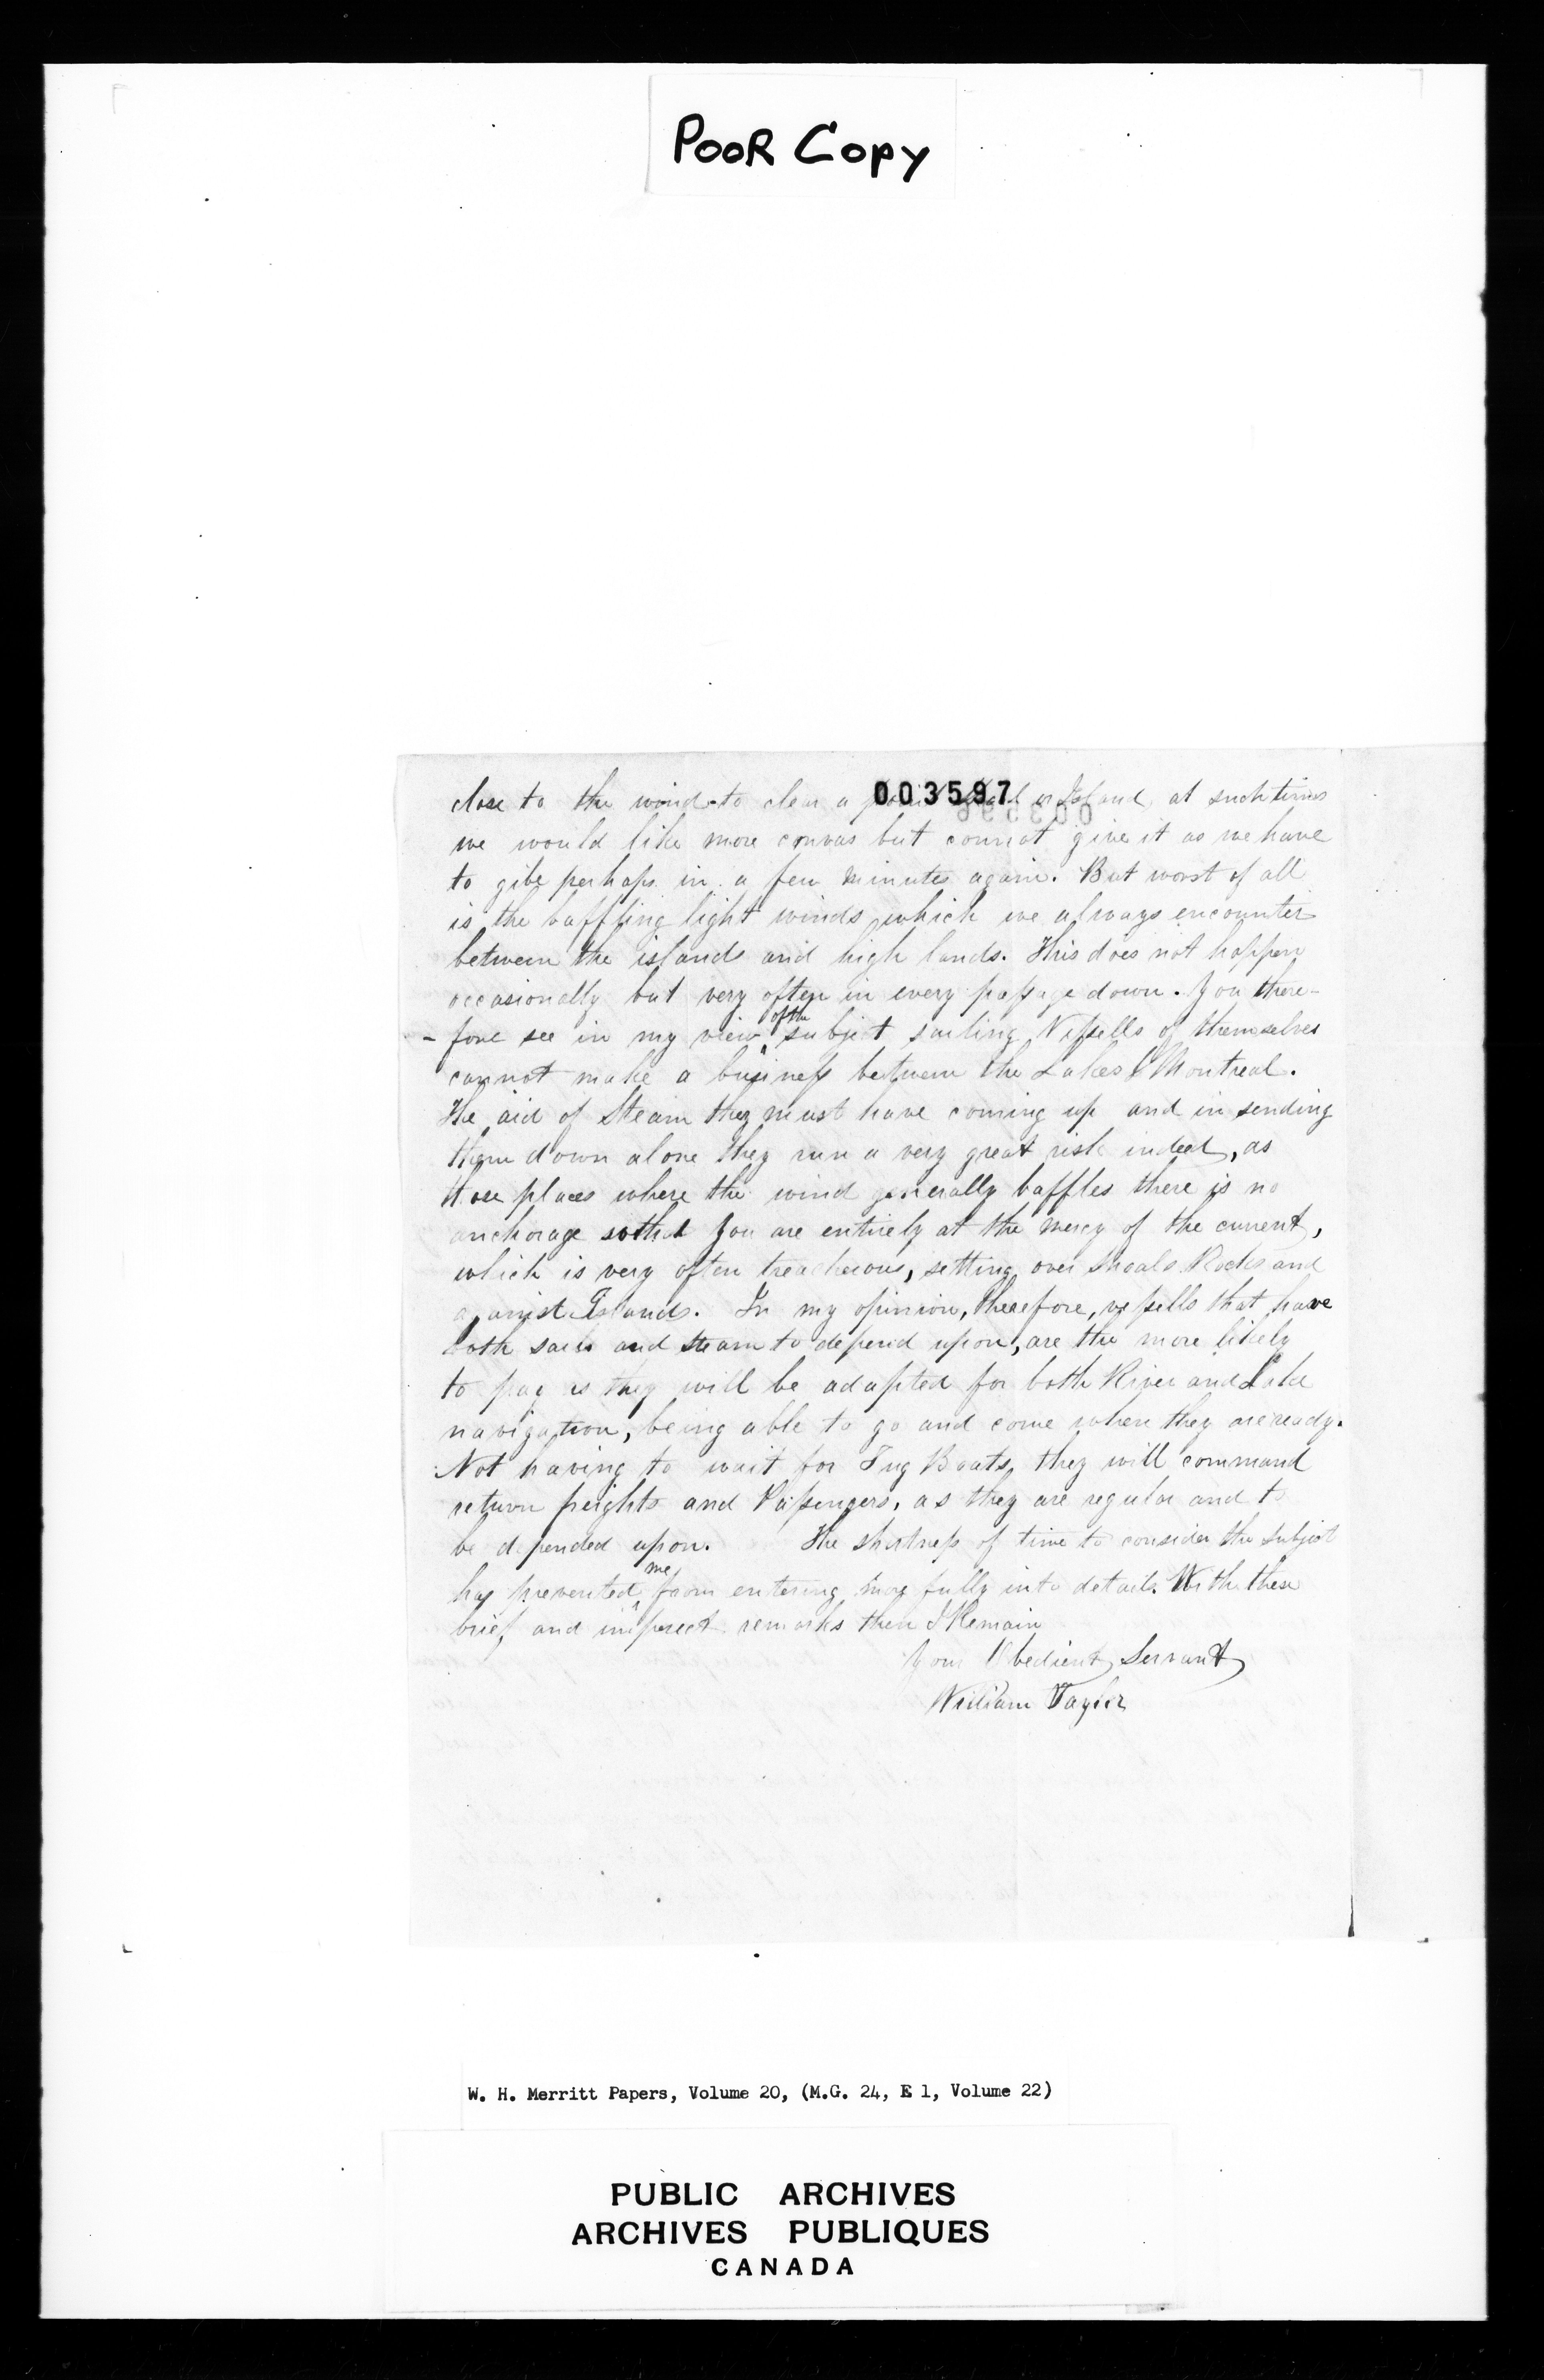 POOR COPY
003597
close to the wind to clear a or Island, at such times
we would like more canvas but cannot give it as we have
to gibe perhaps in a few minutes again. But worst of all
is the baffling light winds which we always encounter
between the islands and high lands. This does not happen
occasionally but very often in every passage down. You there-
- fore see in my view of the subject sailing Vessells of themselves
cannot make a business between the Lakes & Montreal.
The aid of Steam they must have coming up and in sending
them down alone they run a very great risk indeed, as
those places where the wind generally baffles there is no
anchorage so that you are entirely at the mercy of the current,
which is very often treacherous, setting over Shoals Rocks and
against Islands. In my opinion, therefore, vessells that have
both sails and steam to depend upon, are the more likely
to pay as they will be adapted for both River and Lake
navigation, being able to go and come when they are ready.
Not having to wait for Tug Boats, they will command
return freights and Passengers, as they are regular and to
be depended upon. The shortness of time to consider the subject
has prevented me from entering more fully into details. With these
brief and imperfect remarks then I Remain
Your Obedient Servant
William Taylor
W. H. Merritt Papers, Volume 20, (M.G. 24, E 1, Volume 22)
PUBLIC ARCHIVES
ARCHIVES PUBLIQUES
CANADA